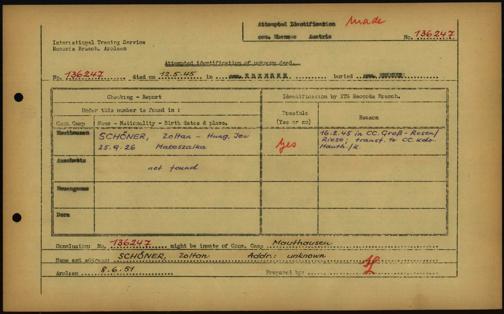 Attempted Identification Made
com. Ebensee Austria No. 136247
International Tracing Service
Records Branch, Arolsen
Attempted identification of unknown dead.
No. 136247 died on 12.5.45 in com. EBENSEE buried com. EBENSEE
Checking - Report
Identification by ITS Records Branch.
Under this number is found in :
Possible (Yes or no)
Reason
Conc. Camp
Name - Nationality - Birth dates & place.
Mauthausen
SCHÖNER, Zoltan - Hung. Jew
25.9.26 Mateszalka
Yes
16.2.45 in CC. Groß-Rosen/
Riese; transf. to CC. Kdo.
Mauth/
Auschwitz
not found
Neuengamme
Dora
Conclusion No. 136247 might be inmate of Conc. Camp Mauthausen
Name and address: SCHÖNER, Zoltan Addr.: unknown
Arolsen 8.6.51 Prepared by: